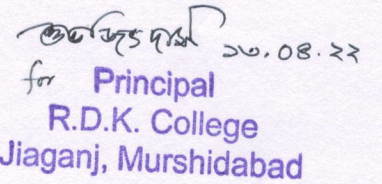 শুভজিৎ দাস ১৩.০৪.২২
for Principal
R.D.K. College
Jiaganj, Murshidabad